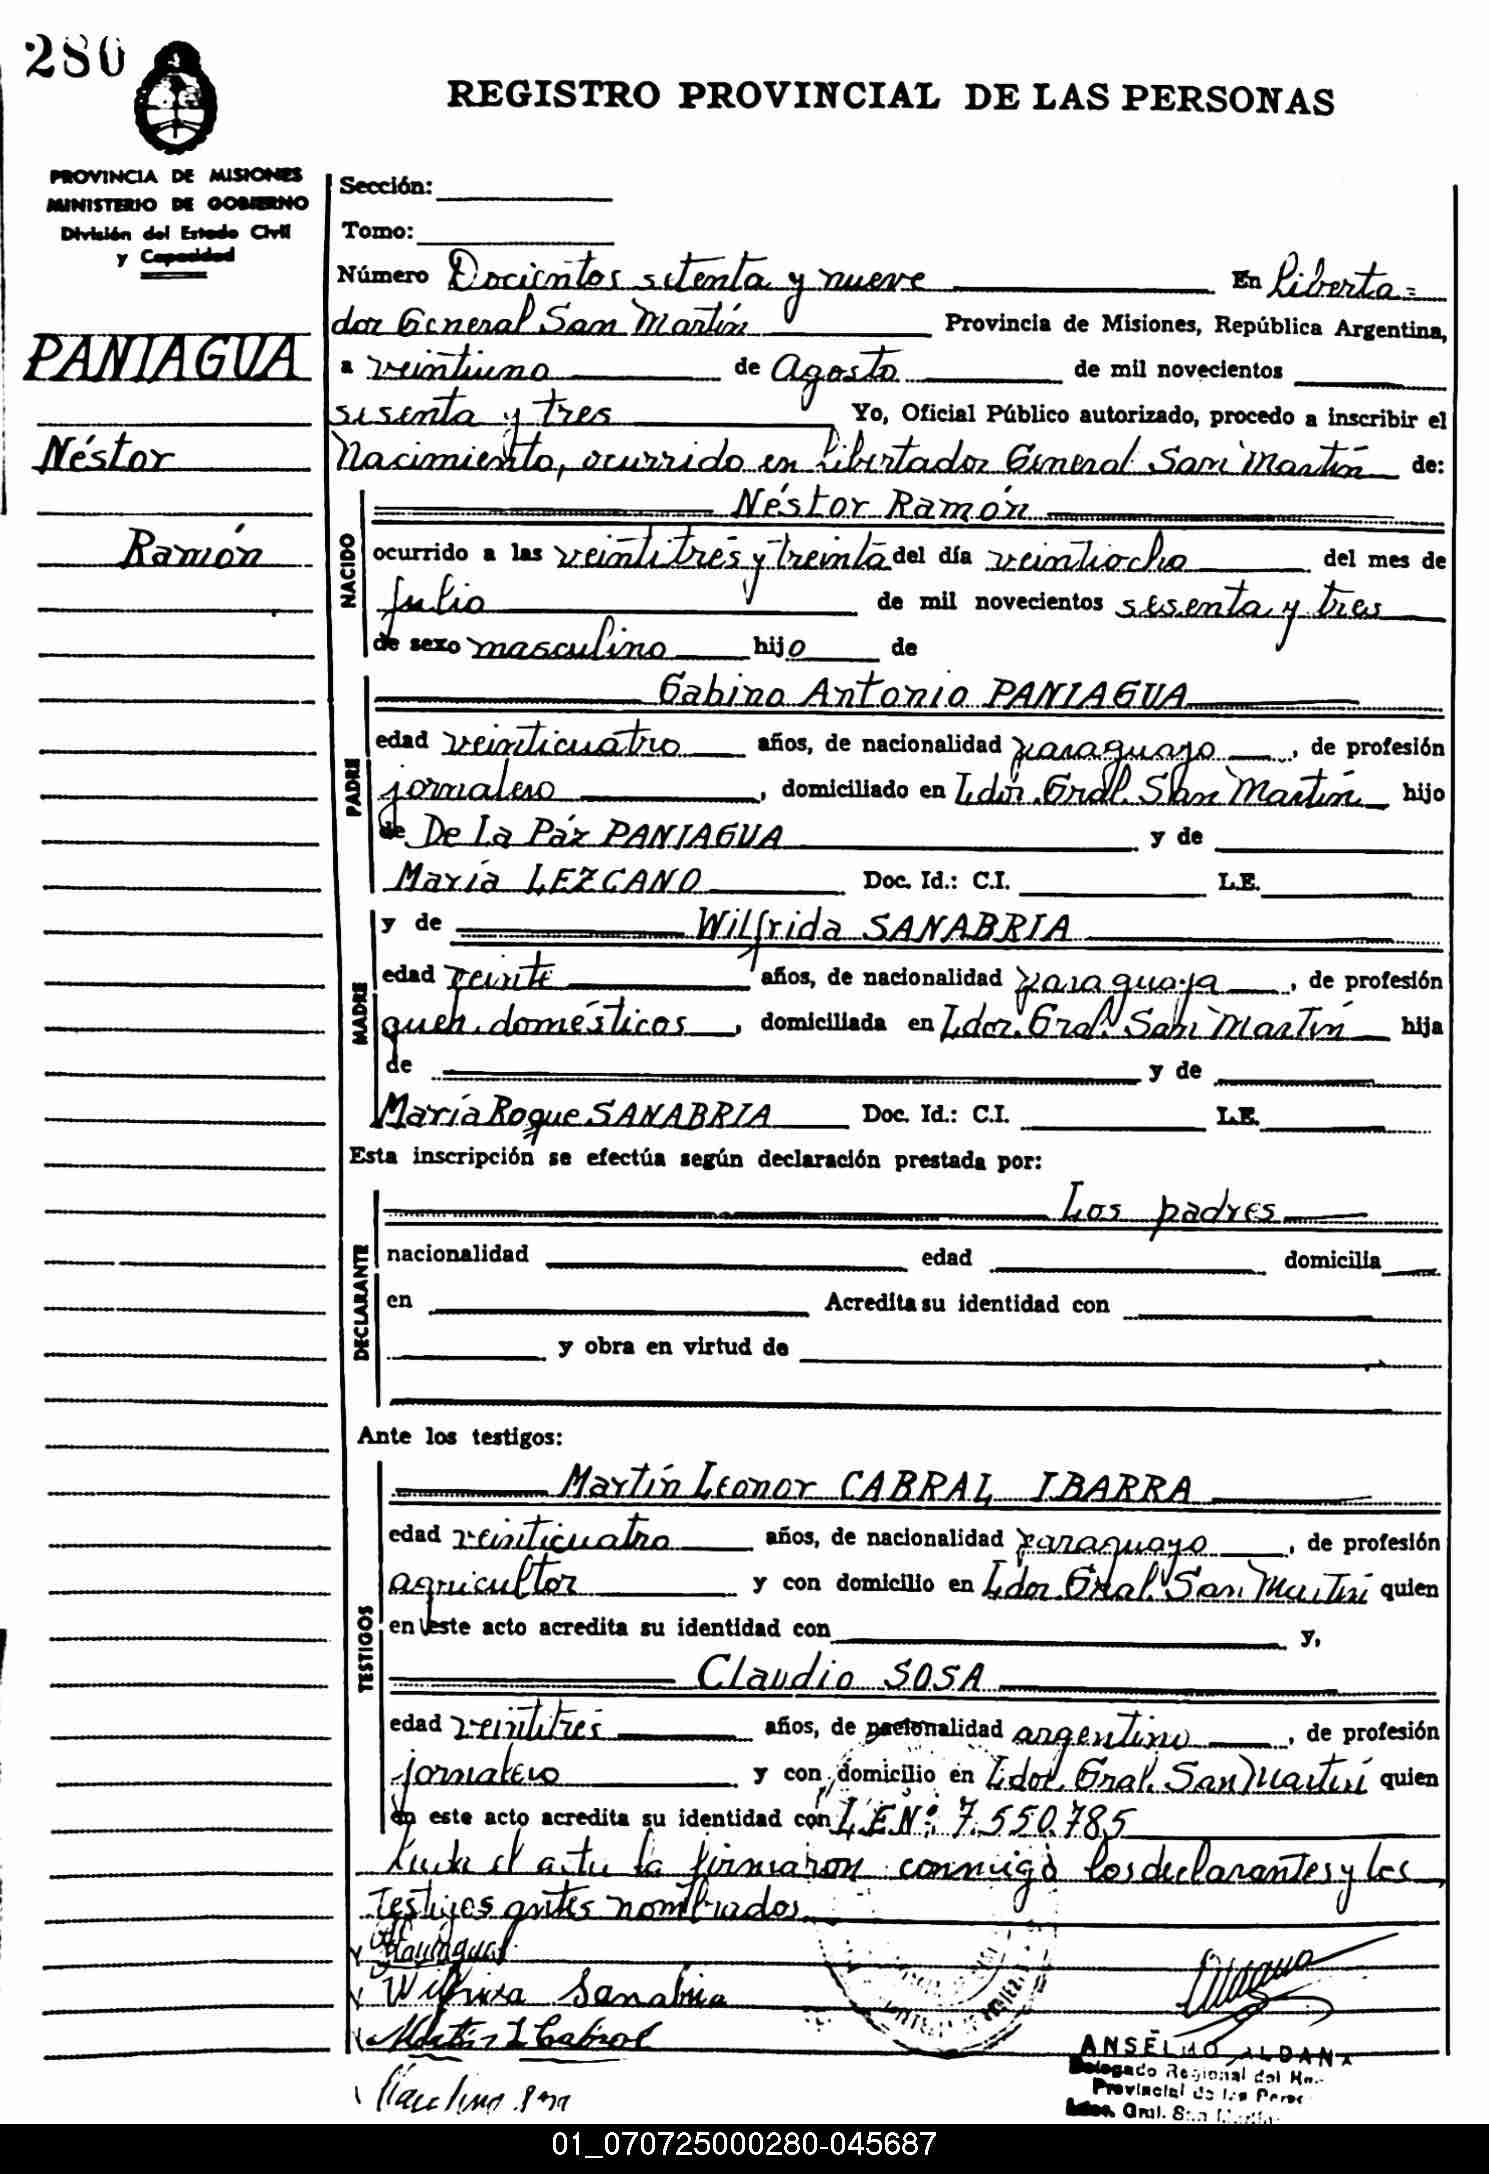 280
REGISTRO PROVINCIAL DE LAS PERSONAS
PROVINCIA DE MISIONES
MINISTERIO DE GOBIERNO
División del Estado Civil
y Capacidad
PANIAGUA
Néstor
Ramón
Sección:
Tomo:
Número Docientos setenta y nueve En Liberta=
dor General San Martín Provincia de Misiones, República Argentina,
a veintiuno de Agosto de mil novecientos
sesenta y tres Yo, Oficial Público autorizado, procedo a inscribir el
Nacimiento, ocurrido en Libertador General San Martín de:
NACIDO
Néstor Ramón
ocurrido a las veintitrés y treinta del día veintiocho del mes de
Julio de mil novecientos sesenta y tres
de sexo masculino hijo de
PADRE
Gabino Antonio PANIAGUA
edad veinticuatro años, de nacionalidad paraguayo, de profesión
jornalero, domiciliado en Ldor. Gral. San Martín hijo
de De La Páz PANIAGUA y de
María LEZCANO Doc. Id.: C.I. L.E.
MADRE
y de Wilfrida SANABRIA
edad veinte años, de nacionalidad paraguaya, de profesión
queh. domésticos, domiciliada en Ldor. Gral. San Martín hija
de y de
María Roque SANABRIA Doc. Id.: C.I. L.E.
Esta inscripción se efectúa según declaración prestada por:
DECLARANTE
Los padres
nacionalidad edad domicilia
en Acredita su identidad con
y obra en virtud de
Ante los testigos:
TESTIGOS
Martín Leonor CABRAL IBARRA
edad veinticuatro años, de nacionalidad paraguayo, de profesión
agricultor y con domicilio en Ldor. Gral. San Martín quien
en este acto acredita su identidad con y,
Claudio SOSA
edad veintitrés años, de nacionalidad argentino, de profesión
jornalero y con domicilio en Ldor. Gral. San Martín quien
en este acto acredita su identidad con L.E.Nº: 7.550.785
Leída el acta la firmaron conmigo los declarantes y los
testigos antes nombrados
Wilfrida Sanabria
Martin L Cabral
ANSELMO ALDANA
Delegado Regional del
Provincial de las
Ldor. Gral. San Martín
01_070725000280-045687